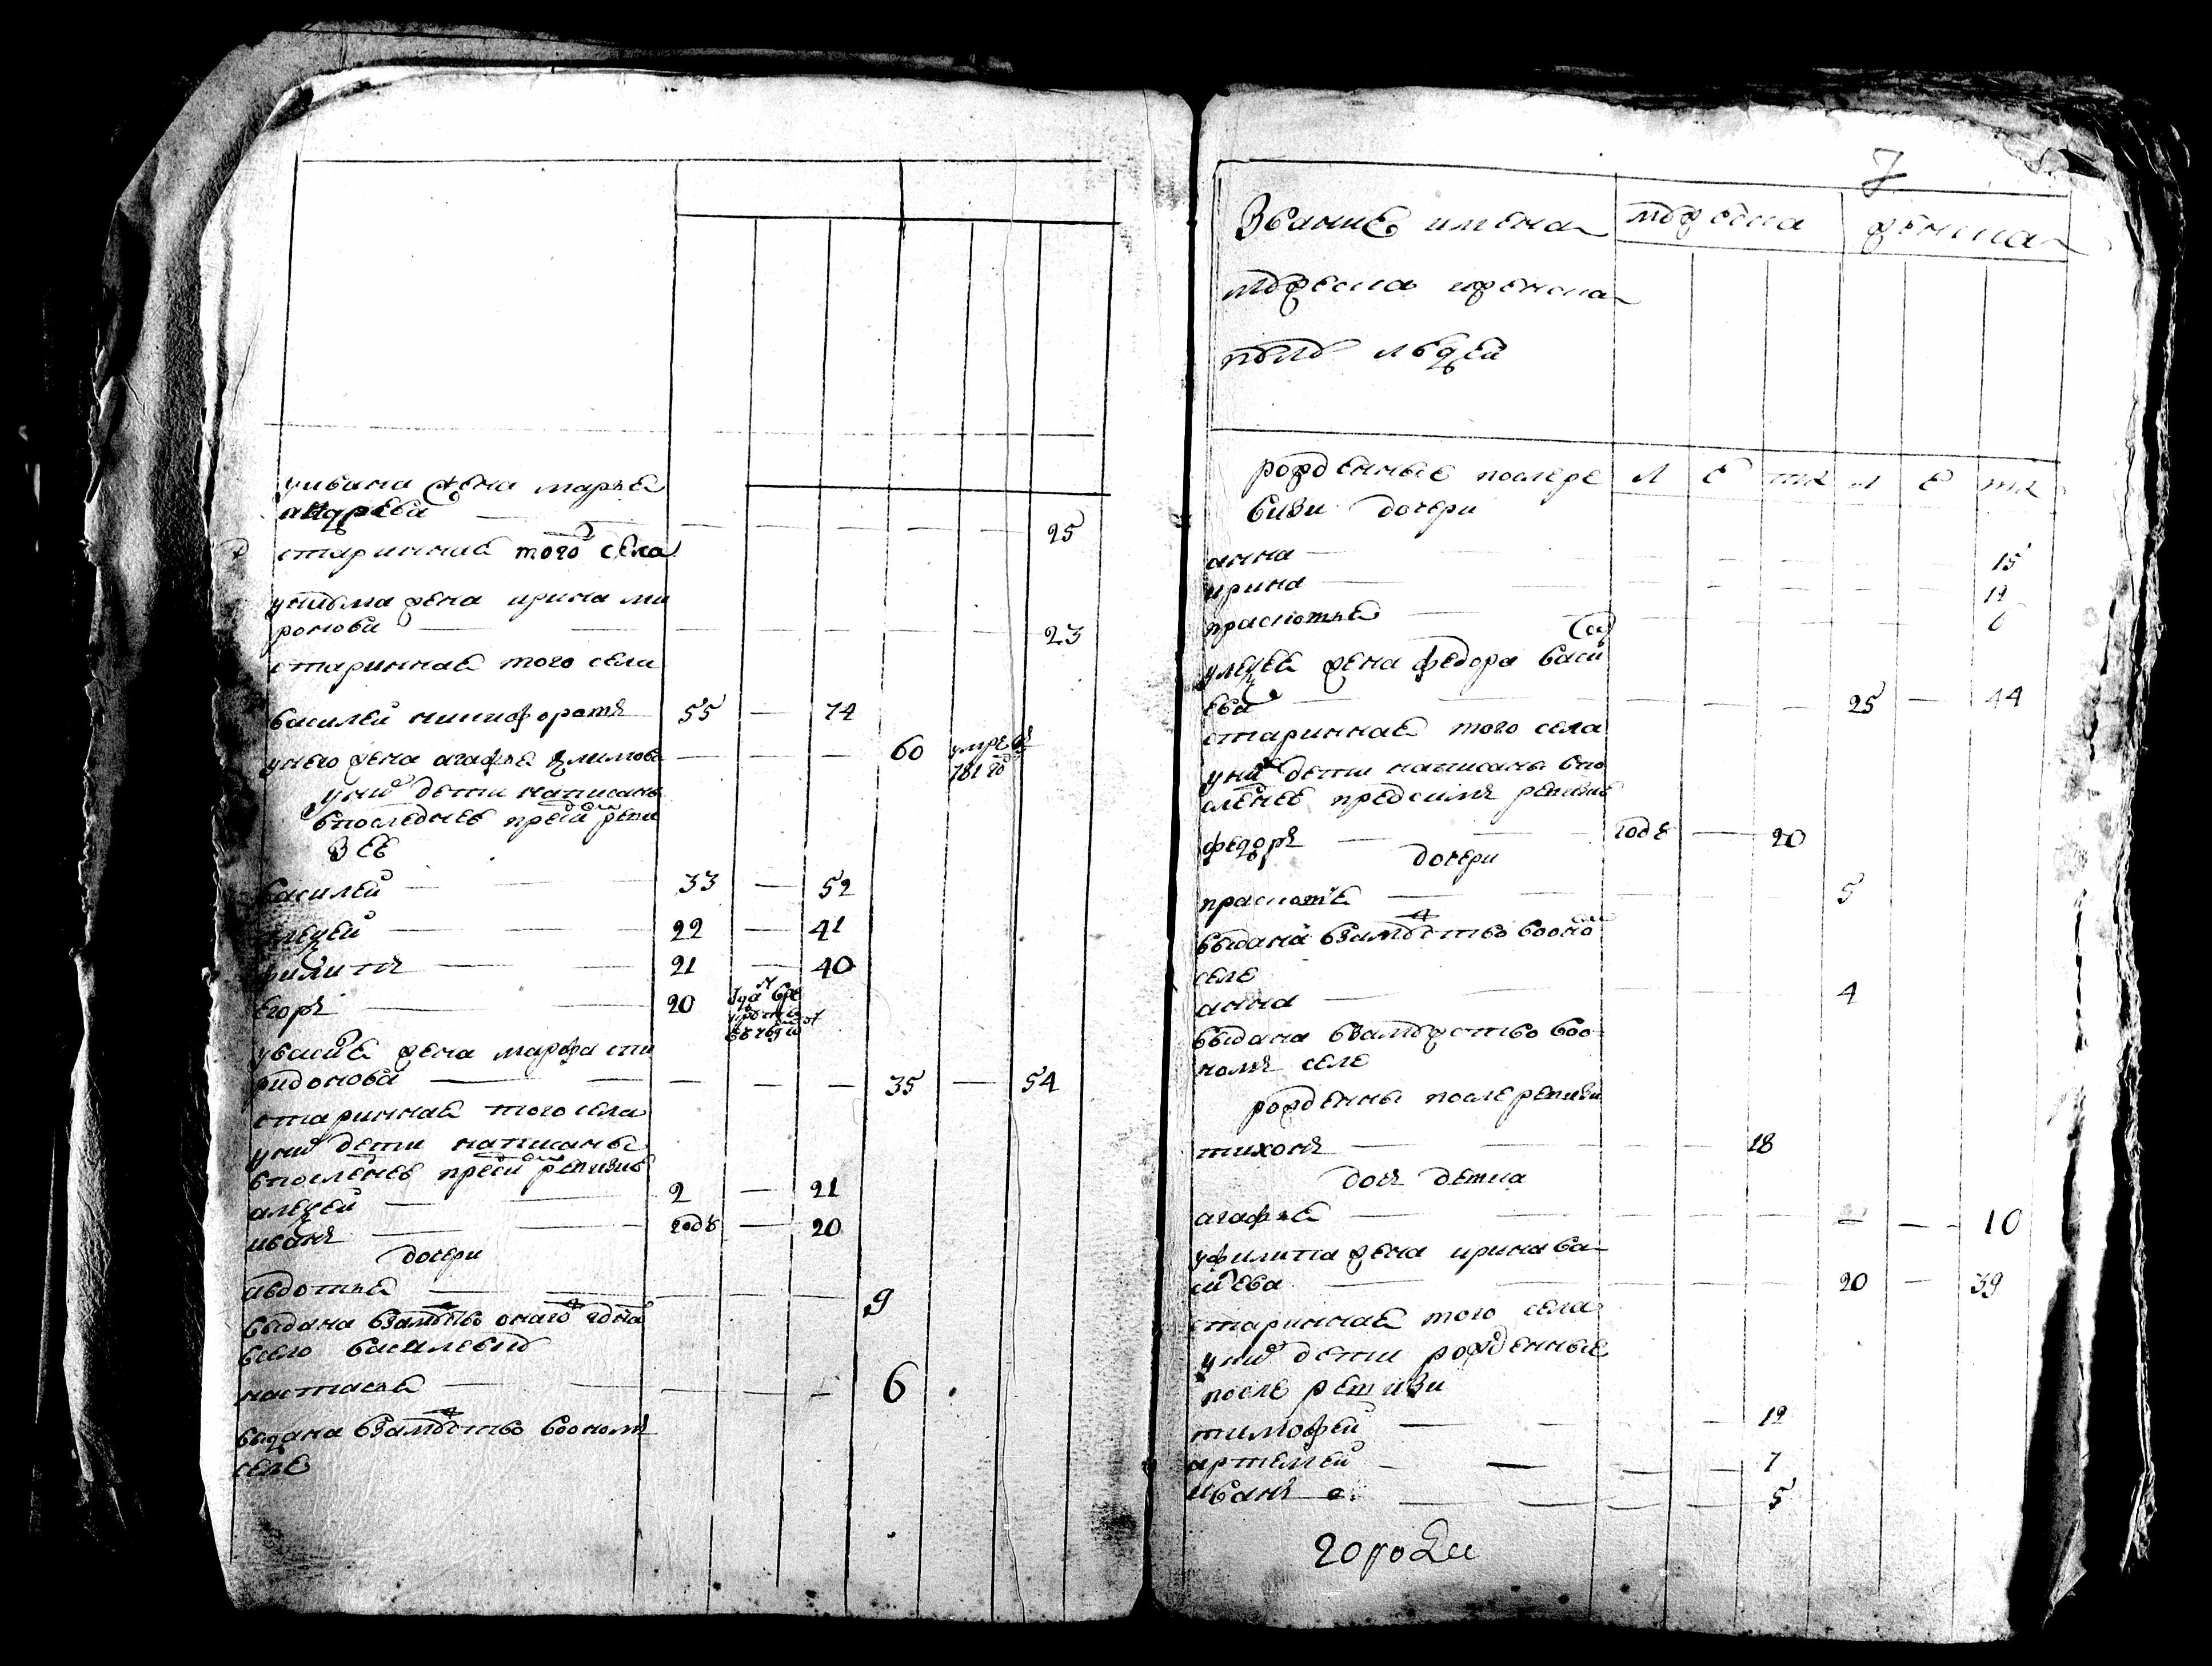 уивана жена марья
андреева — — — — — — — 25
старинная того села
укузма жена ирина ми
ронова — — — — — — — 23
стариннае того села
василей никифоратъ 55 — 74
унево жена агафье — — — 60 умре въ 781 го
уних дети написаны
впоследнее пред сей реви
зее
василей — — 33 — 52
алексей — — 22 — 41
филипъ — — 21 — 40
егоръ — — 20
увасилья жена марфа спи
ридонова — — — — — 35 — 54
стариннае того села
уних дети написаны
впоследнее пред сей ревизие
алексей — 2 — 21
иванъ — годъ — 20
дочери
авдотья — — — — 9
выдана взамужство
всело василевку
настасья — — — — — 6
выдана взамужство вооном
селе
7
Звание имена мужеска женска
мужеска иженска
полу людей
рожденные послере л е тъ л е тъ
визи дочери
анна — — — — — — — 15
ирина — — — — — — — 12
прасковья — — — — 6
улексея жена федора васи
ева — — — — — 25 — 44
стариннае того села
уних дети написаны впо
следнее пред симъ ревизие
федоръ — — годъ — 20
дочери
прасковье — — — — 5
выдана взамужство вооном
селе
анна — — — — 4
выдана взамужство воо
номъ селе
рожденны после ревизи
тихонъ — — — — 18
дочь детка
агафья — — — — — — — 10
уфилипа жена ирина ва
сильева — — — — — 20 — 39
стариннае того села
уних дети рожденные
после ревизи
тимофей — — — 12
артемей — — — — 7
иванъ — — — — — 5